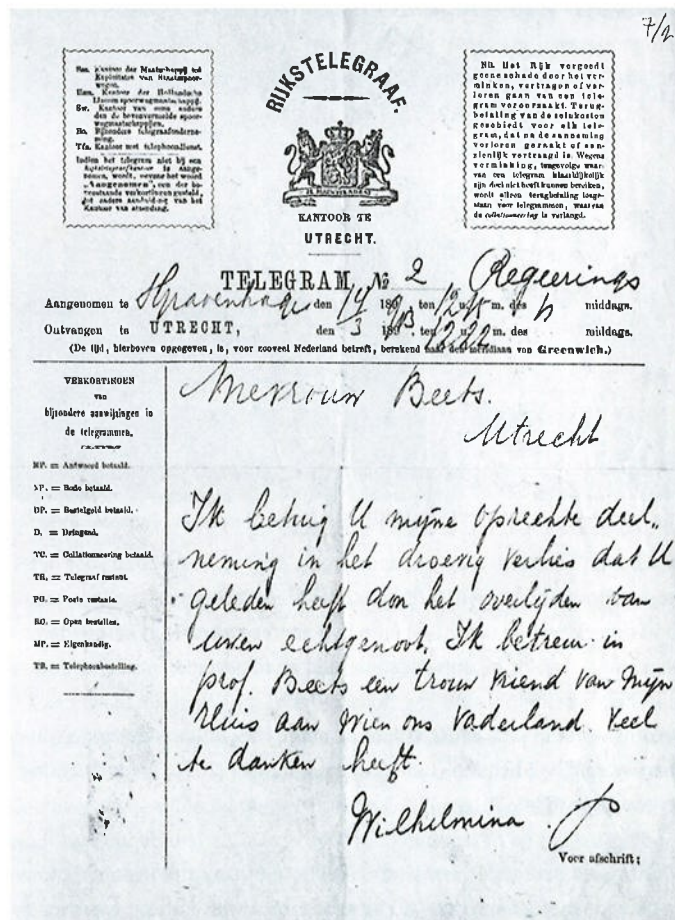 7/2
RIJKSTELEGRAAF.
JE MAINTIENDRAI
KANTOOR TE
UTRECHT.
Kantoor der Maatschappij tot
Exploitatie van Staatsspoor-
wegen.
Kantoor der Hollandsche
IJzeren spoorwegmaatschappij.
Kantoor van eene andere
dan de bovenvermelde spoor-
wegmaatschappijen.
Bijzondere telegraafonderne-
ming.
Kantoor met telephoondienst.
Indien het telegram niet bij een
Rijkstelegraafkantoor is aange-
nomen, wordt, vervolgens het woord
"Aangenomen", een der bo-
venstaande verkortingen gesteld,
tot nadere aanduiding van het
Kantoor van afzending.
NB. Het Rijk vergoedt
geene schade door het ver-
minken, vertragen of ver-
loren gaan van een tele-
gram veroorzaakt. Terug-
betaling van de seinkosten
geschiedt voor elk tele-
gram, dat na de aanneming
verloren geraakt of aan-
zienlijk vertraagd is. Wegens
verminking, tengevolge waar-
van een telegram klaarblijkelijk
zijn doel niet heeft kunnen bereiken,
wordt alleen terugbetaling toege-
staan voor telegrammen, waarvan
de collationneering is verlangd.
TELEGRAM, No 2 Regeerings
Aangenomen te Gravenhage den 14 ten 12 u. m. des middags.
Ontvangen te UTRECHT, den 3 te 12 22 m. des middags.
(De tijd, hierboven opgegeven, is, voor zooveel Nederland betreft, berekend naar den meridiaan van Greenwich.)
VERKORTINGEN
van
bijzondere aanwijzingen in
de telegrammen.
RP. = Antwoord betaald.
XP. = Bode betaald.
DP. = Bestelgeld betaald.
D. = Dringend.
TC. = Collationneering betaald.
TR. = Telegraaf restant.
PG. = Poste restante.
RO. = Open bestellen.
MP. = Eigenhandig.
TB. = Telephoonbestelling.
Mevrouw Beets.
Utrecht
Ik betuig U mijne oprechte deel„
neming in het droevig verlies dat U
geleden heeft don het overlijden van
uwen echtgenoot. Ik betreur in
prof. Beets een trouw vriend van mijn
Huis aan wien ons Vaderland veel
te danken heeft.
Wilhelmina
Voor afschrift: